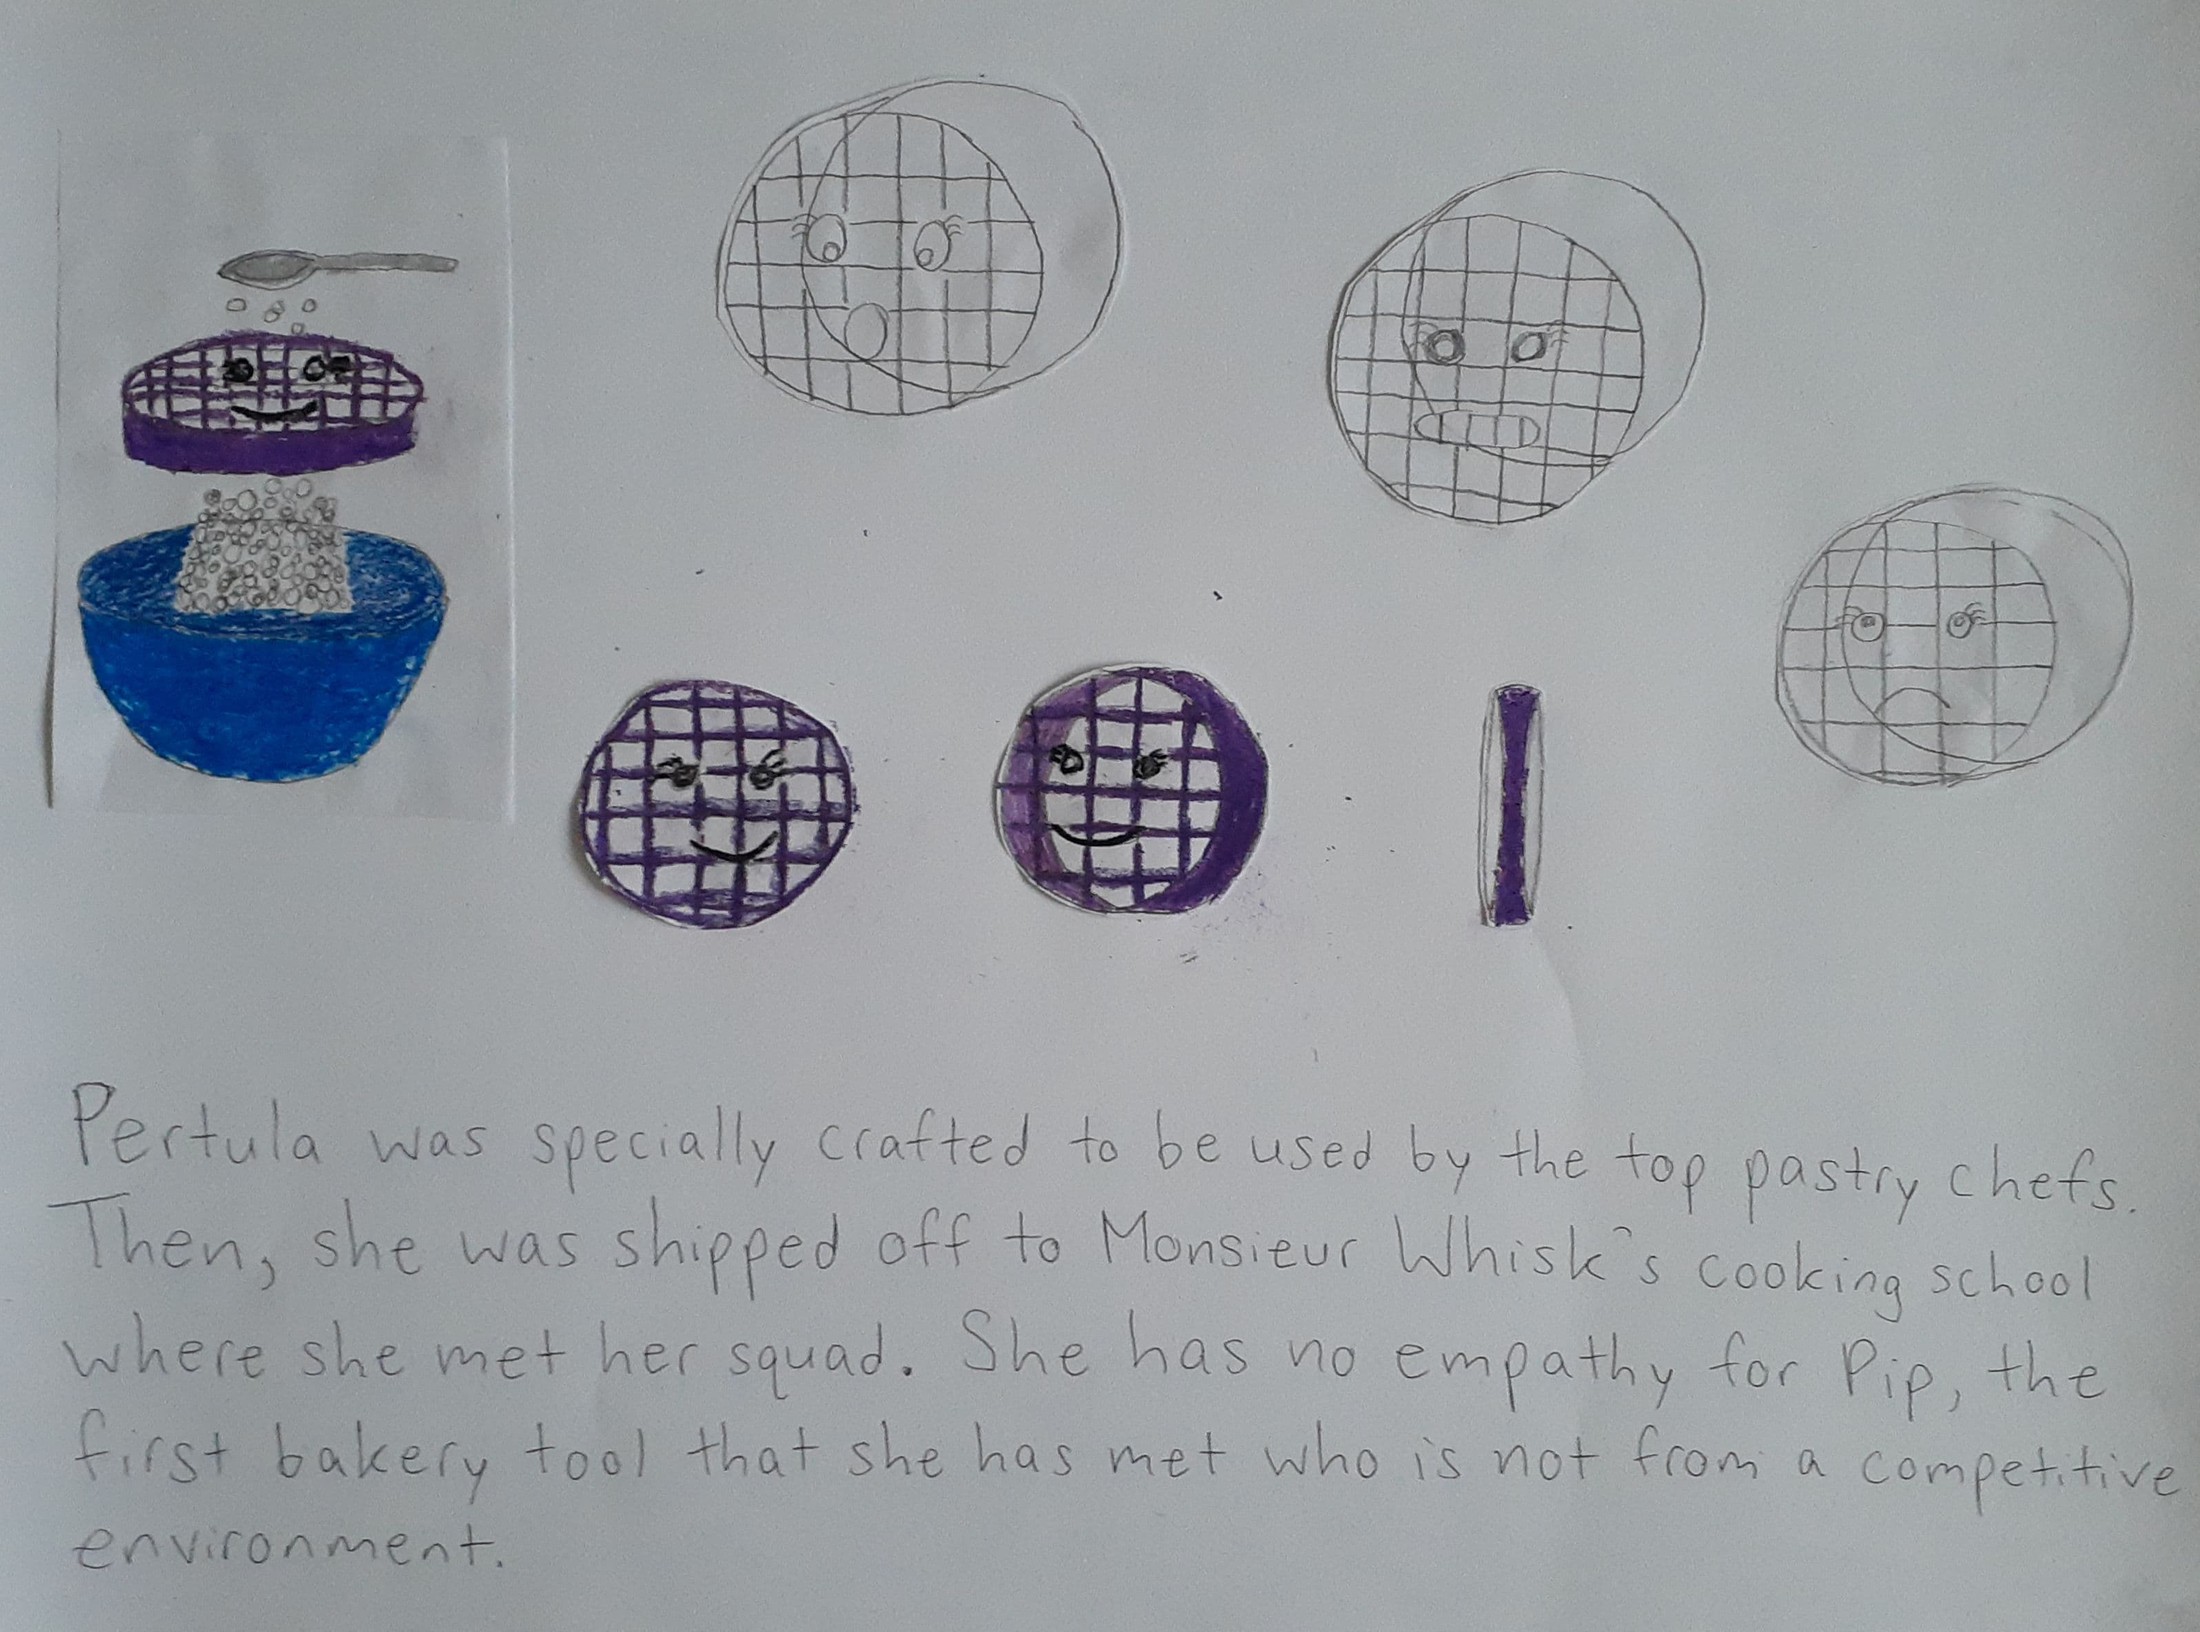 Pertula was specially crafted to be used by the top pastry chefs.
Then, she was shipped off to Monsieur Whisk's cooking school
where she met her squad. She has no empathy for Pip, the
first bakery tool that she has met who is not from a competitive
environment.